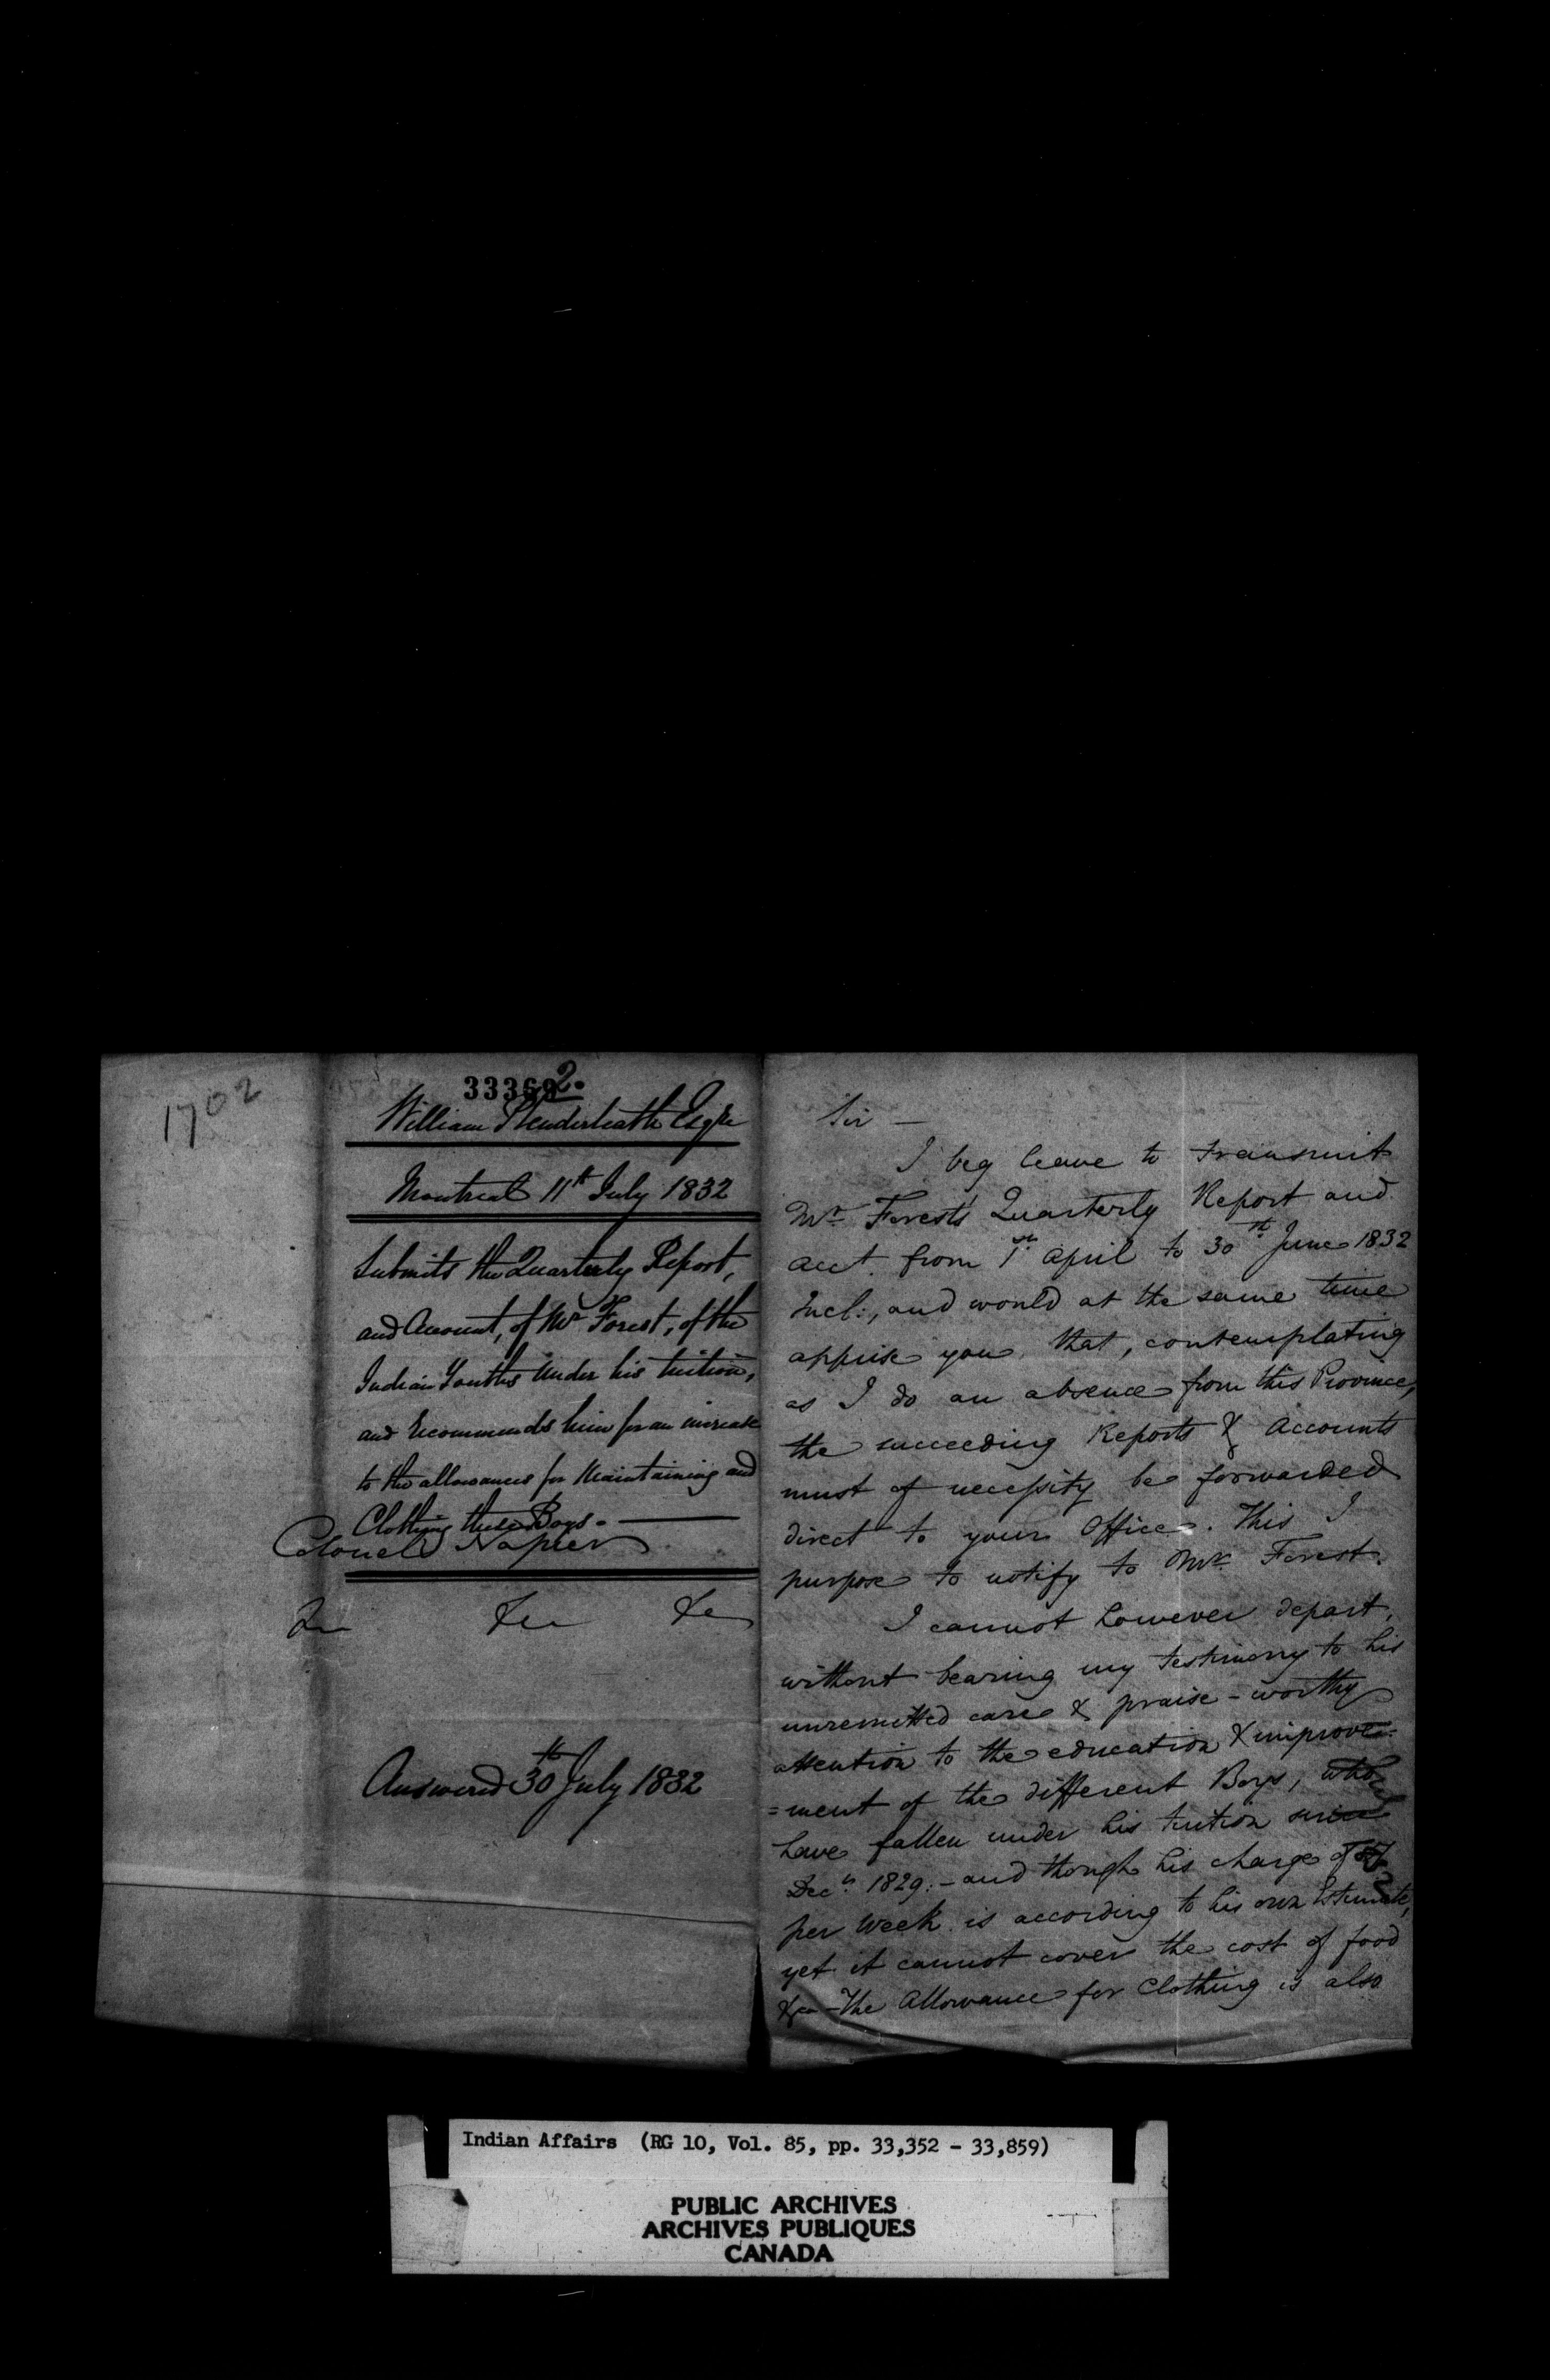 1702
33369
2.
William Plenderleath Esqre
Montreal 11th July 1832
Submits the Quarterly Report,
and Account, of Mr Forest, of the
Indian Youths under his tuition,
and Recommends him for an increase
to the allowances for Maintaining and
Clothing these Boys. —
Colonel Napier
&c &c
Answered 30th July 1832
Sir —
I beg leave to transmit
Mr Forest's Quarterly Report and
acct. from 1st April to 30th June 1832
Incl:, and would at the same time
apprise you that, contemplating
as I do an absence from this Province,
the succeeding Reports & Accounts
must of necessity be forwarded
direct to your Office. This I
purpose to notify to Mr Forest.
I cannot however depart,
without bearing my testimony to his
unremitted care & praise-worthy
attention to the education & improve=
=ment of the different Boys, who
have fallen under his tuition since
Decr. 1829:- and though his charge of
per Week is according to his own Estimate,
yet it cannot cover the cost of food
&ca - The Allowance for Clothing is also
Indian Affairs (RG 10, Vol. 85, pp. 33,352 - 33,859)
PUBLIC ARCHIVES
ARCHIVES PUBLIQUES
CANADA